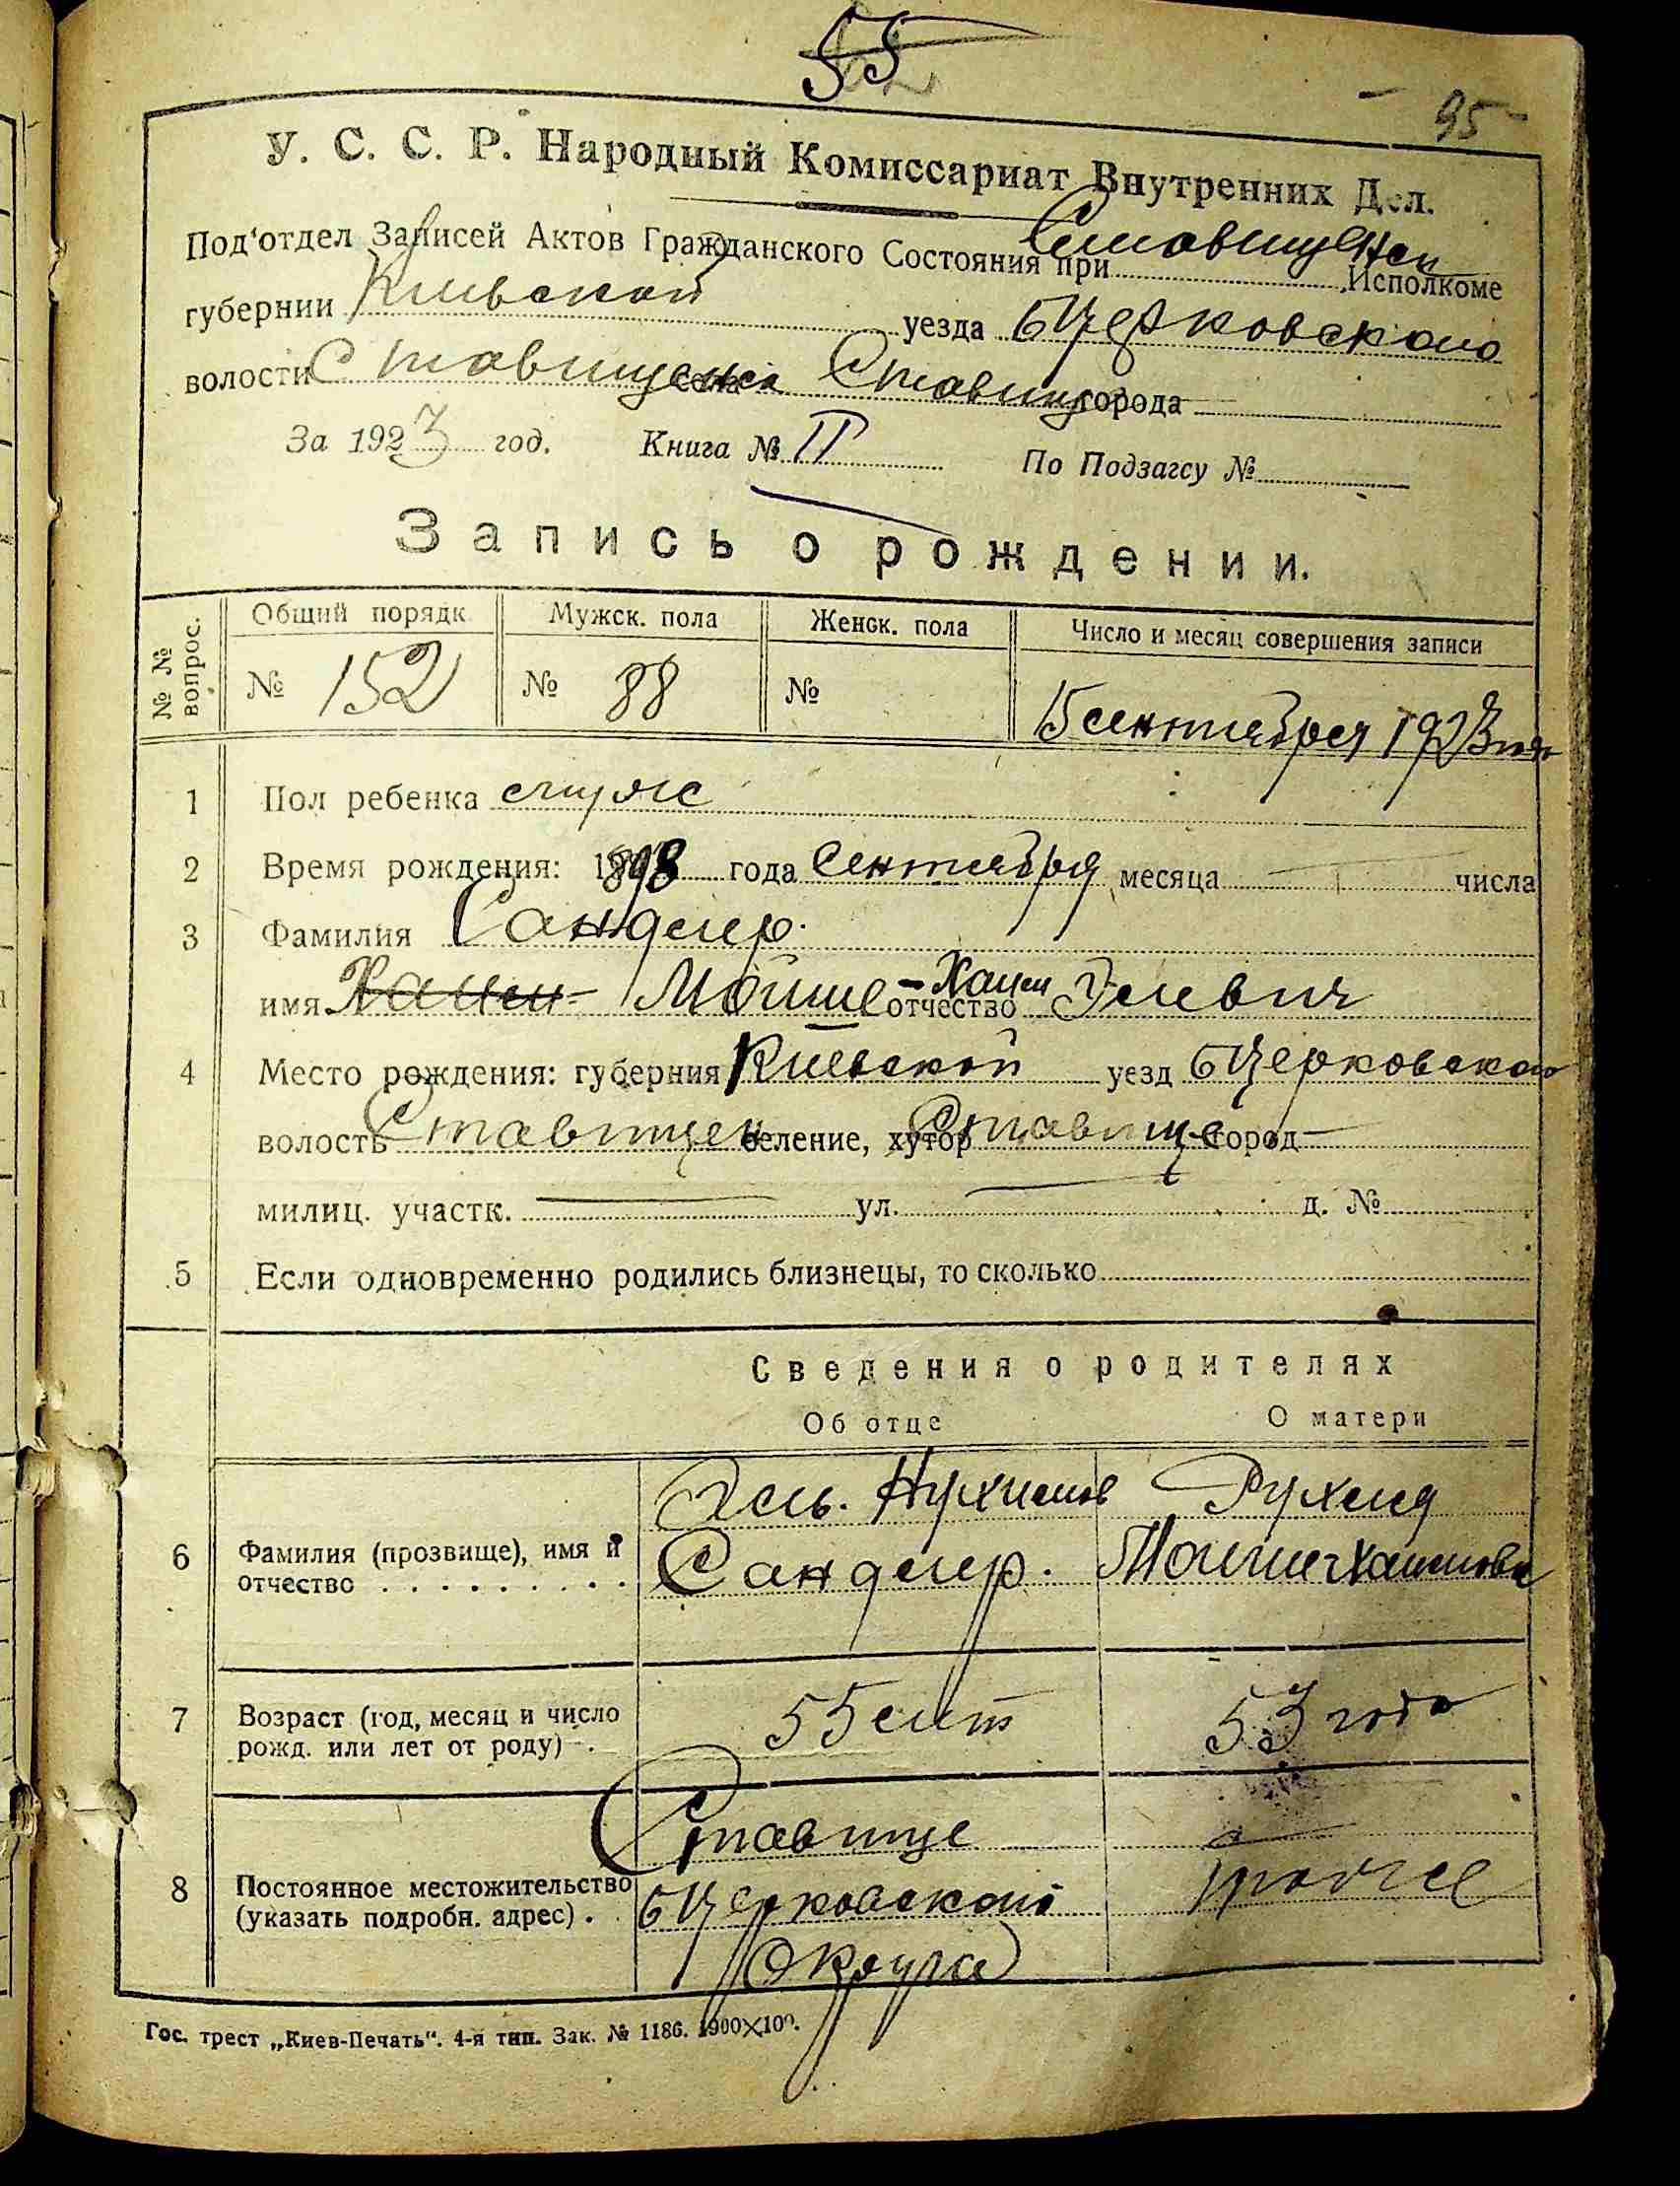 55
95
У. С. С. Р. Народный Комиссариат Внутренних Дел.
Под'отдел Записей Актов Гражданского Состояния при Ставищен Исполкоме
губернии Киевской уезда БЦерковского
волости Ставищенск Ставище города
За 1923 год. Книга № II По Подзагсу №
Запись о рождении.
№ № вопрос. Общий порядк. Мужск. пола Женск. пола Число и месяц совершения записи
№ 152 № 88 № 15 сентября 1923 года
1 Пол ребенка муж
2 Время рождения: 1898 года Сентября месяца — числа
3 Фамилия Сандлер.
имя Хаим Мойше-Хаим отчество Элевич
4 Место рождения: губерния Киевской уезд БЦерковского
волость Ставищен селение, хутор Ставище город —
милиц. участк. — ул. — д. №
5 Если одновременно родились близнецы, то сколько
Сведения о родителях
Об отце О матери
Эль. Нухимов Рухля
6 Фамилия (прозвище), имя и отчество . . . . . . . . . . Сандлер. Мошкохаимовна
7 Возраст (год, месяц и число рожд. или лет от роду) . 55 лет 53 года
Ставище
8 Постоянное местожительство (указать подробн. адрес) . . БЦерковского
Округа
Гос. трест „Киев-Печать“. 4-я тип. Зак. № 1186. 1900×100.